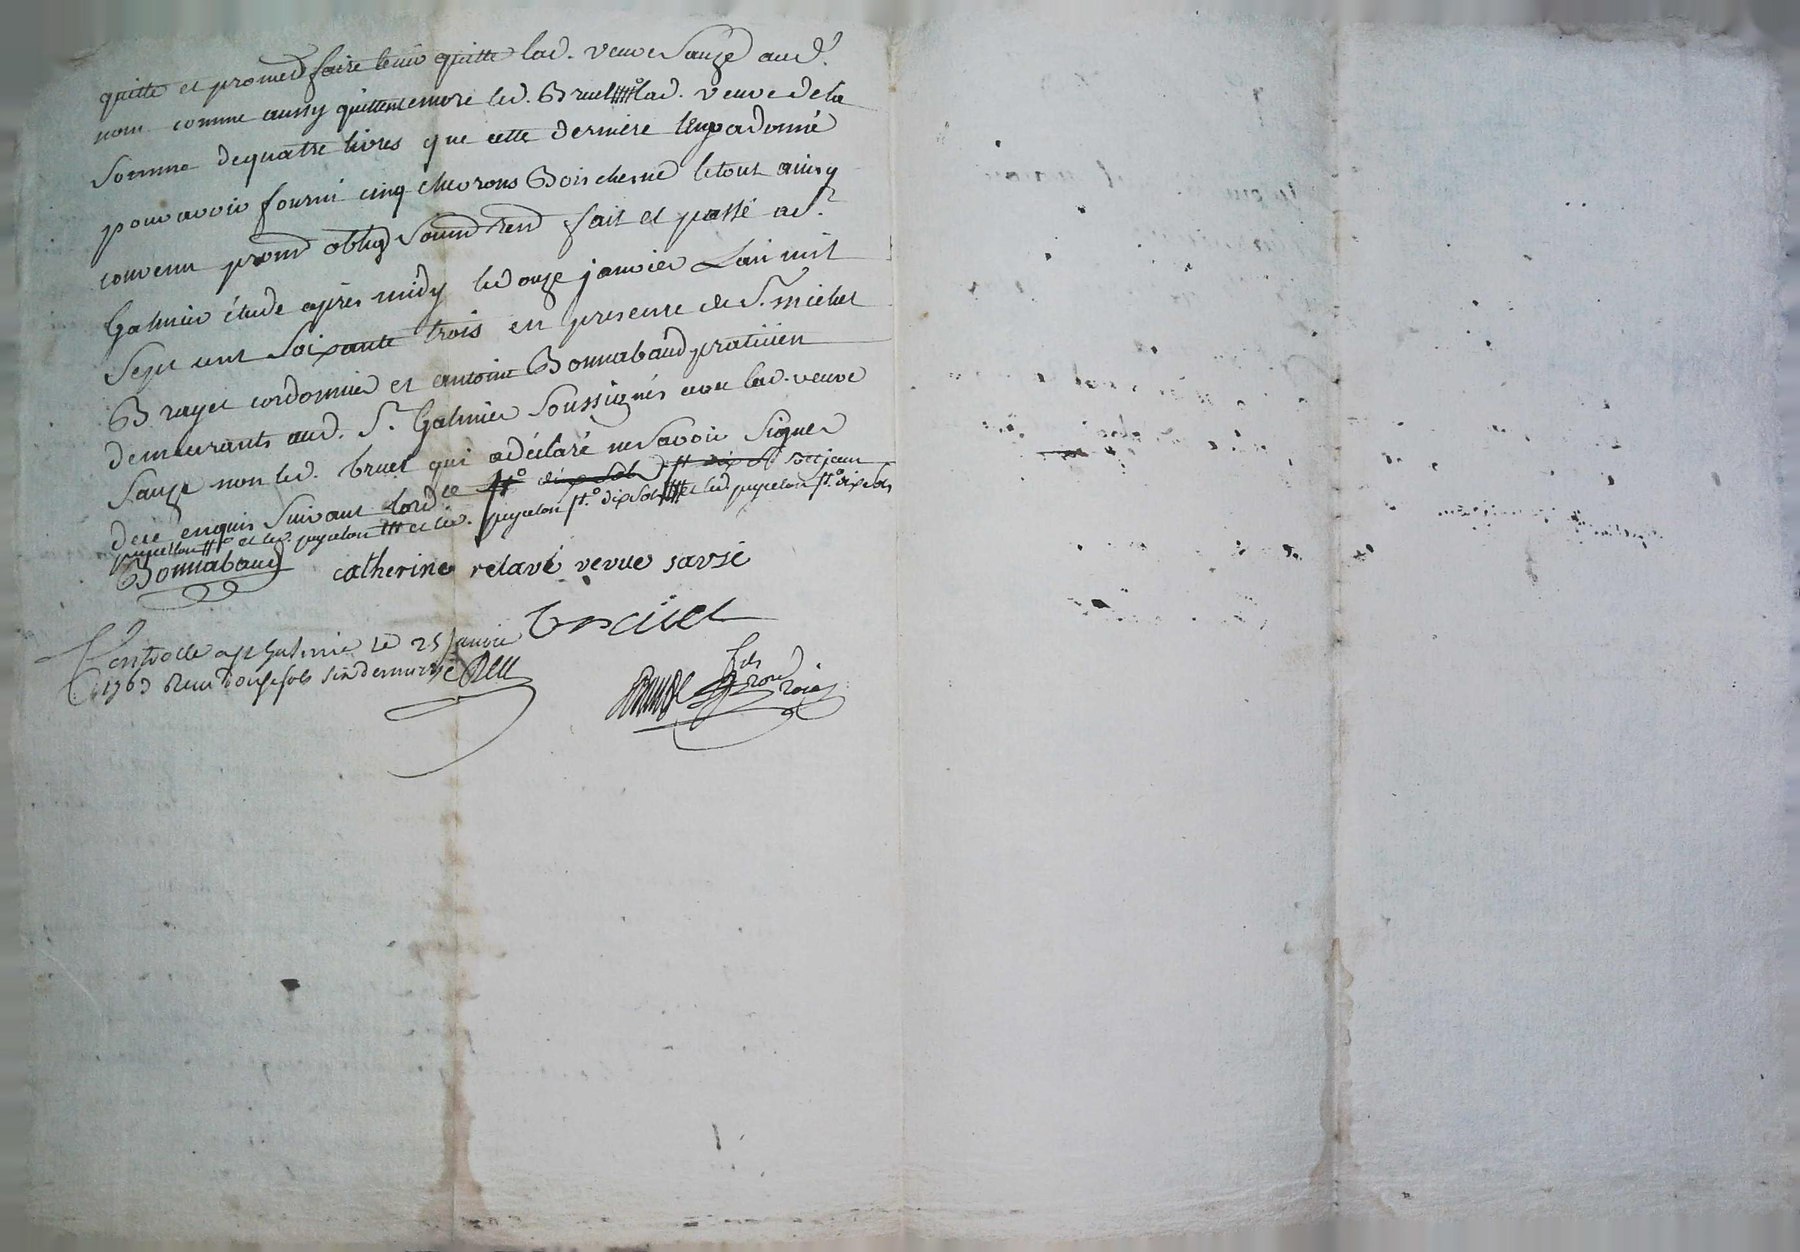 quitte et promed faire tenir quitte lad. veuve Sauze aud.
nom comme aussy quittent encore led. Bruel lad. veuve de la
Somme de quatre livres que cette derniere luy a donné
pour avoir fourni cinq chevrons Bois chesne le tout ainsy
convenu prom oblig soum ren fait et passé a St
Galmier étude apres midy le douze janvier L'an mil
Sept cent soixante trois en presence de Sr. michel
Brayet cordonnier et antoine Bonnabaud praticien
demeurants aud. St Galmier soussignés avec lad. veuve
Sauze non led. bruel qui a déclaré ne savoir Signer
de ce enquis Suivant lord ce dix sols sttjean
et led. peyrelon dix sols et led peyrelon dix sols
Bonnabaud catherine relavé vevue savze
braiet
Controlle a St Galmie le 25 janvie
1763 Reçu douze sols six deniers Rell
fils